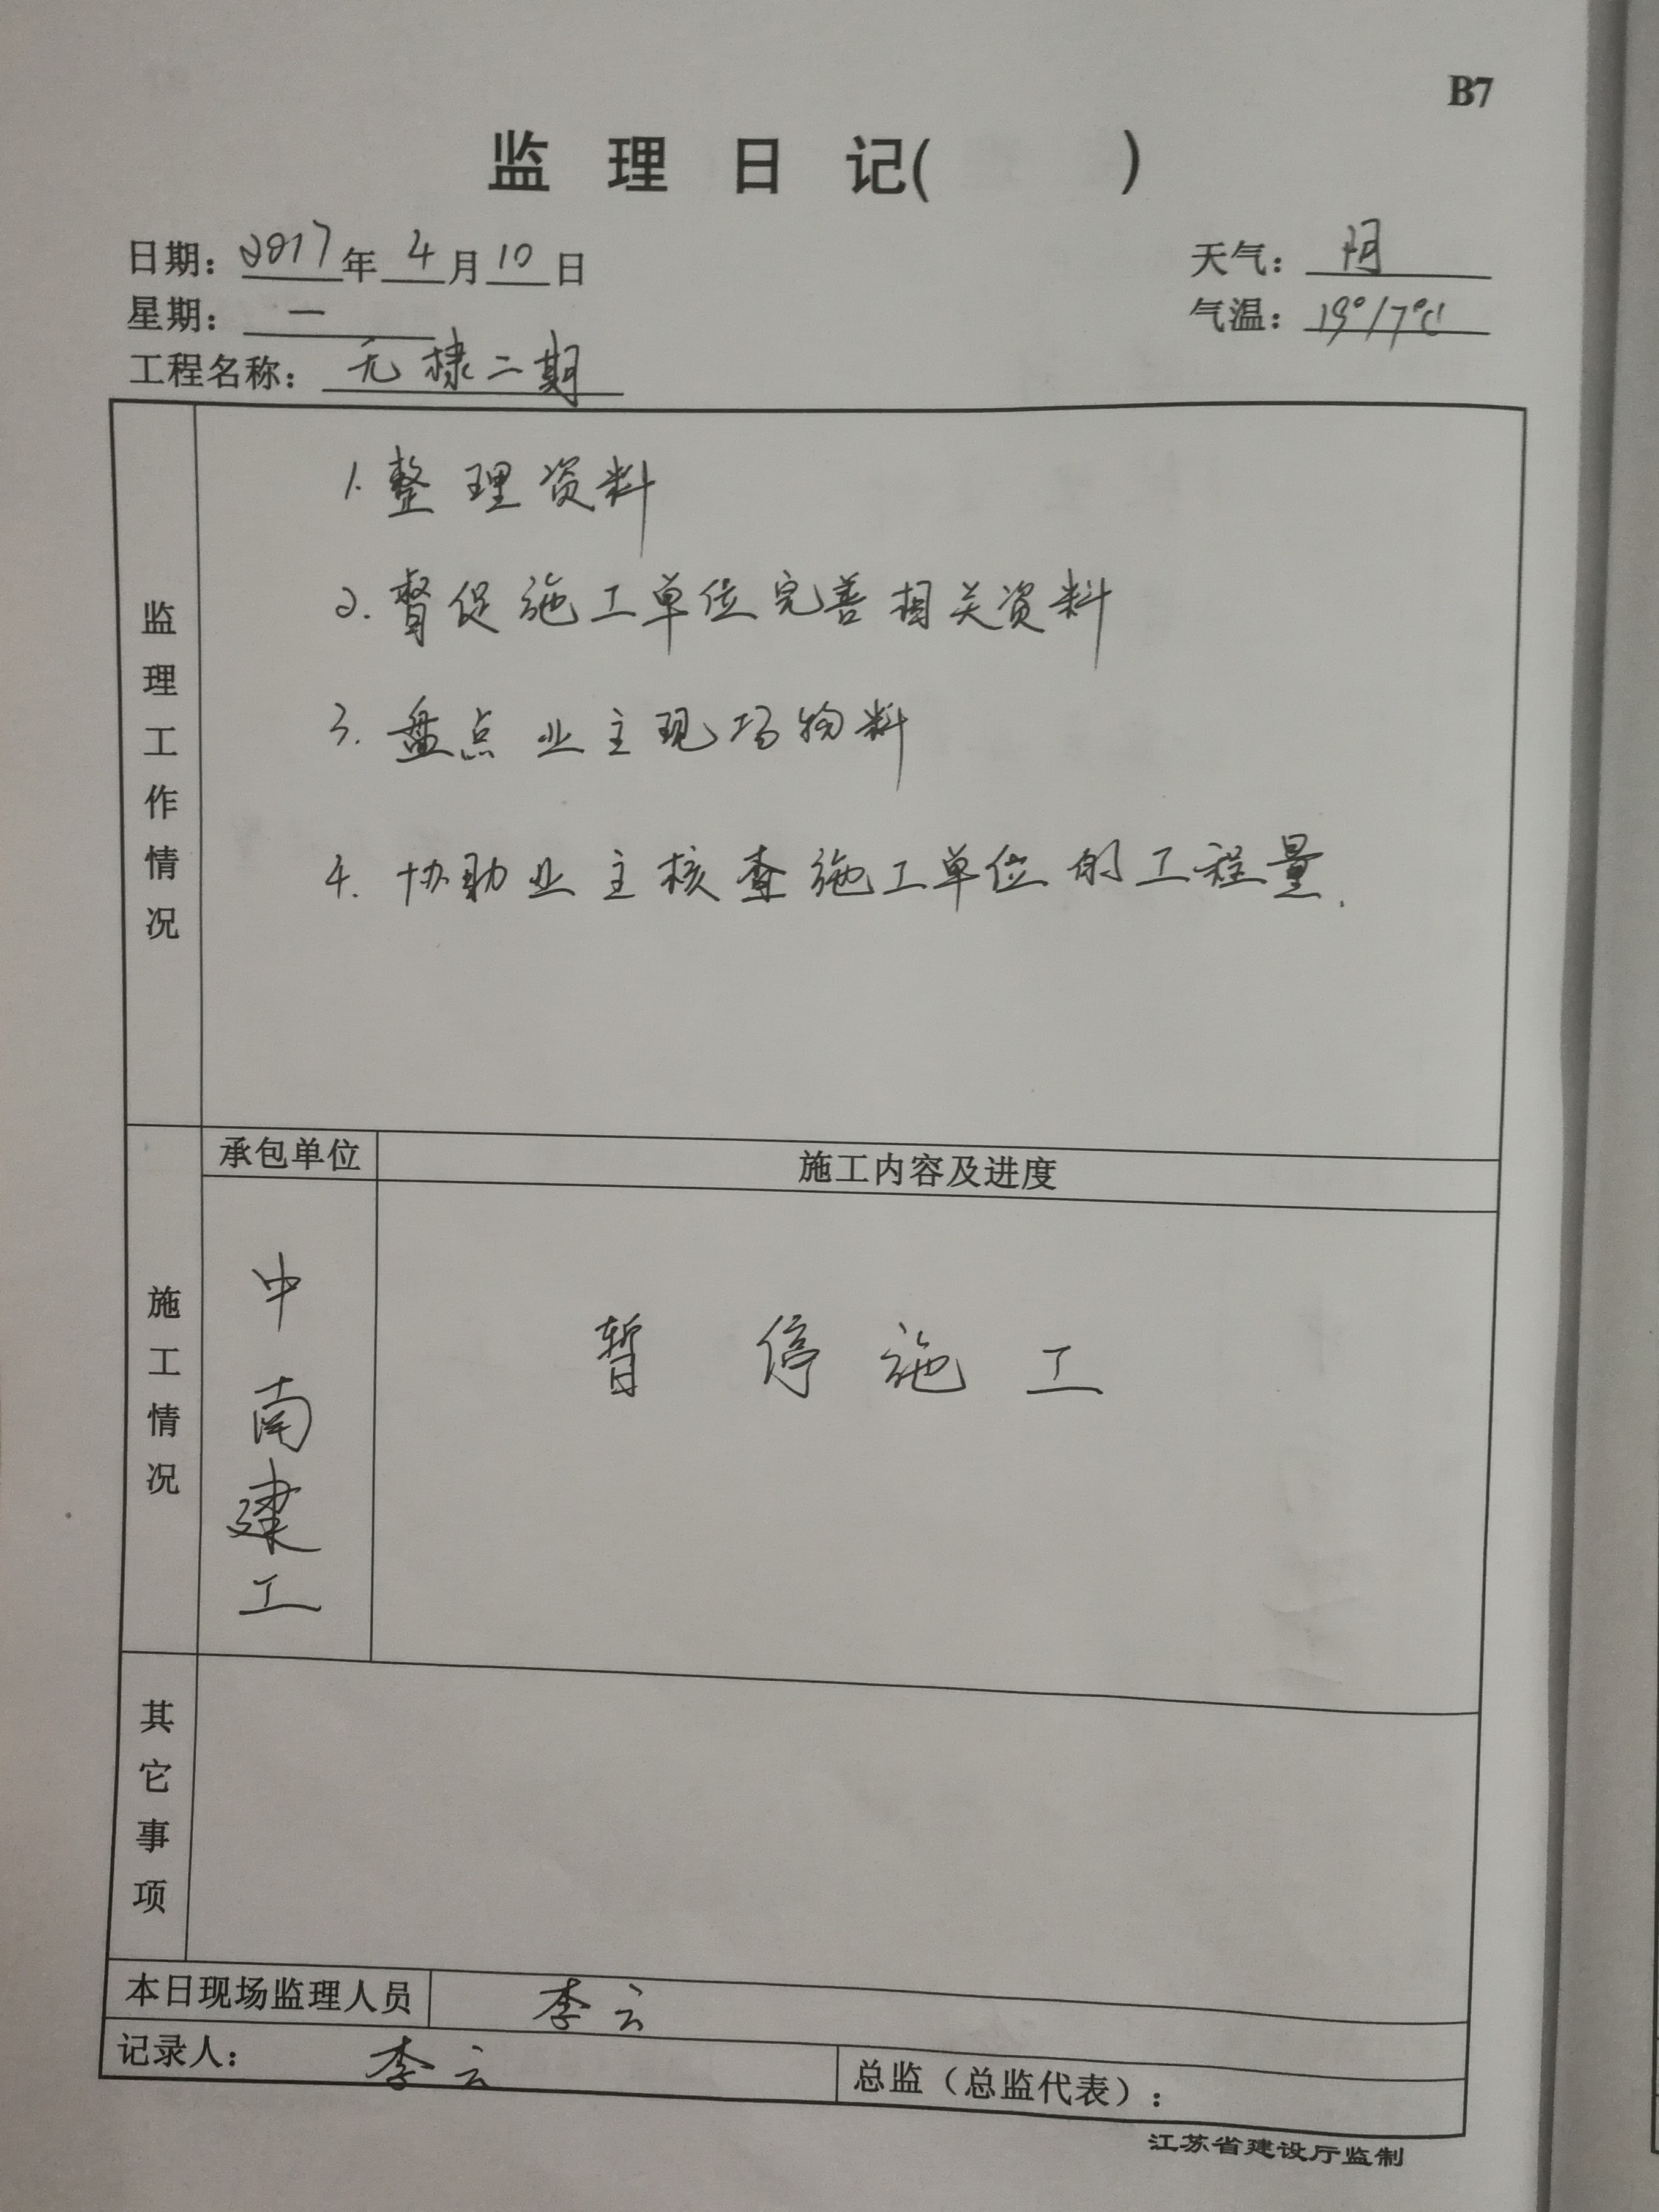 B7
监 理 日 记(      )
日期：2017年 4月10日 天气：阴
星期：一 气温：19°/7℃
工程名称：无棣二期
监理工作情况
1.整理资料
2.督促施工单位完善相关资料
3.盘点业主现场物料
4.协助业主核查施工单位的工程量.
承包单位 施工内容及进度
施工情况
中南建工
暂停施工
其它事项
本日现场监理人员 李云
记录人：李云 总监（总监代表）：
江苏省建设厅监制